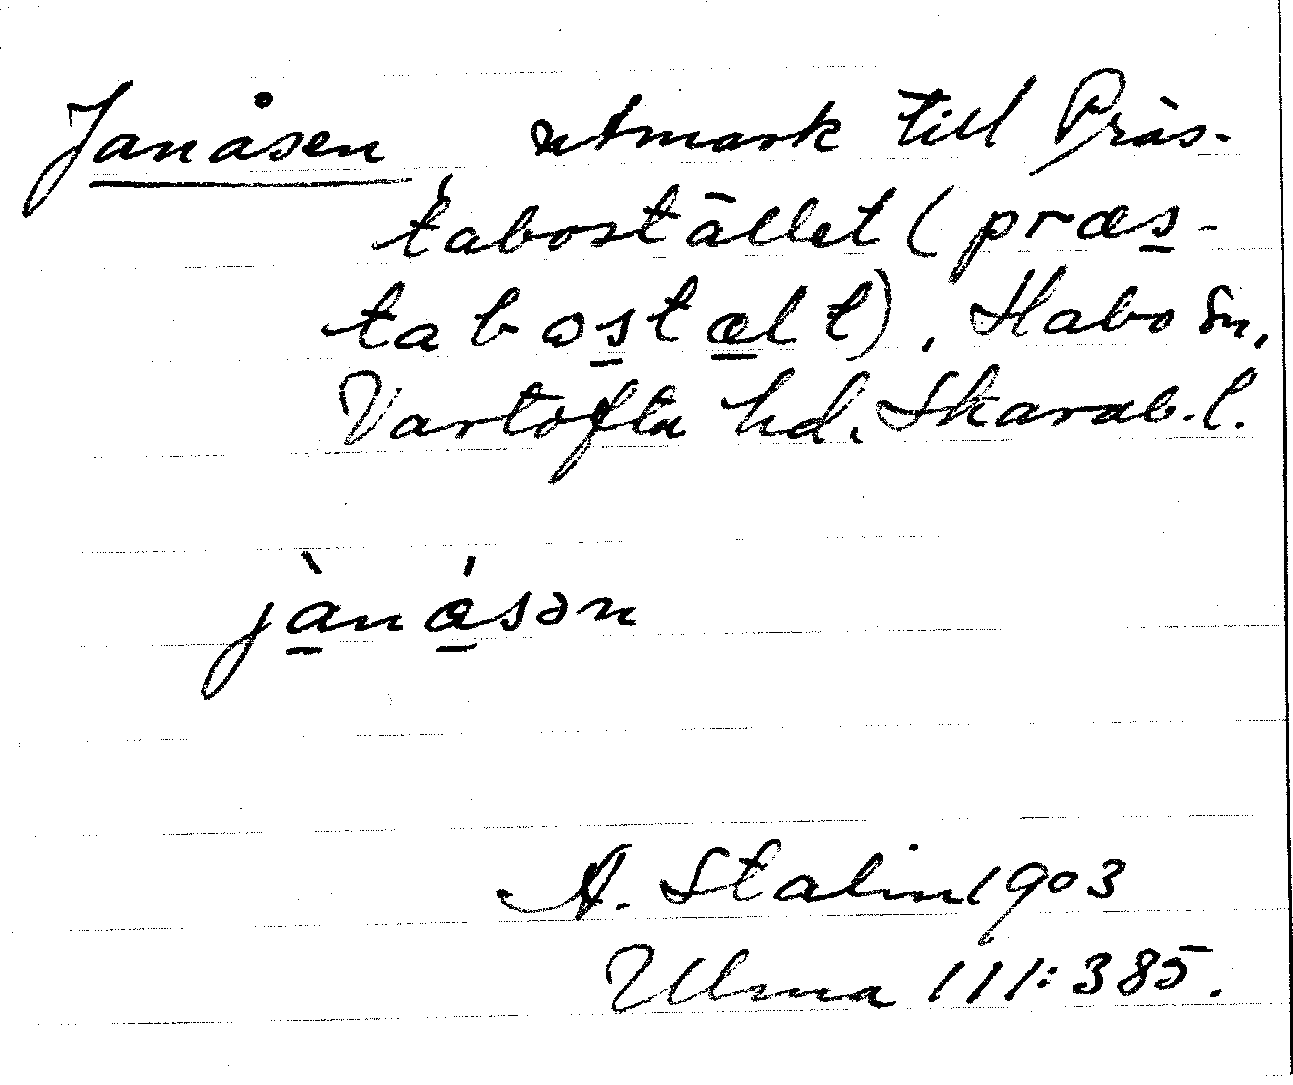 Janåsen, utmark till Präs-
tabostället (præs-
tabostælt), Habo sn,
Vartofta hd. Skarab. l.
jànásən
A. Stalin 1903
Ulma 111:385.